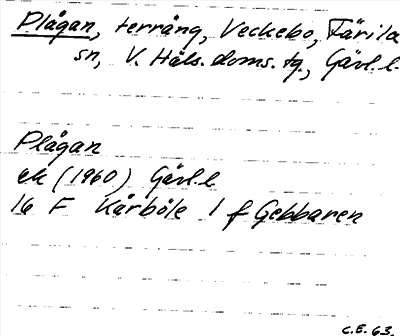 Plågan, terräng, Veckebo, Färila
sn, V. Häls. doms. tg., Gävl. l.
Plågan
ek (1960) Gävl. l
16 F Kårböle 1 f Gebbaren
C.E. 63.